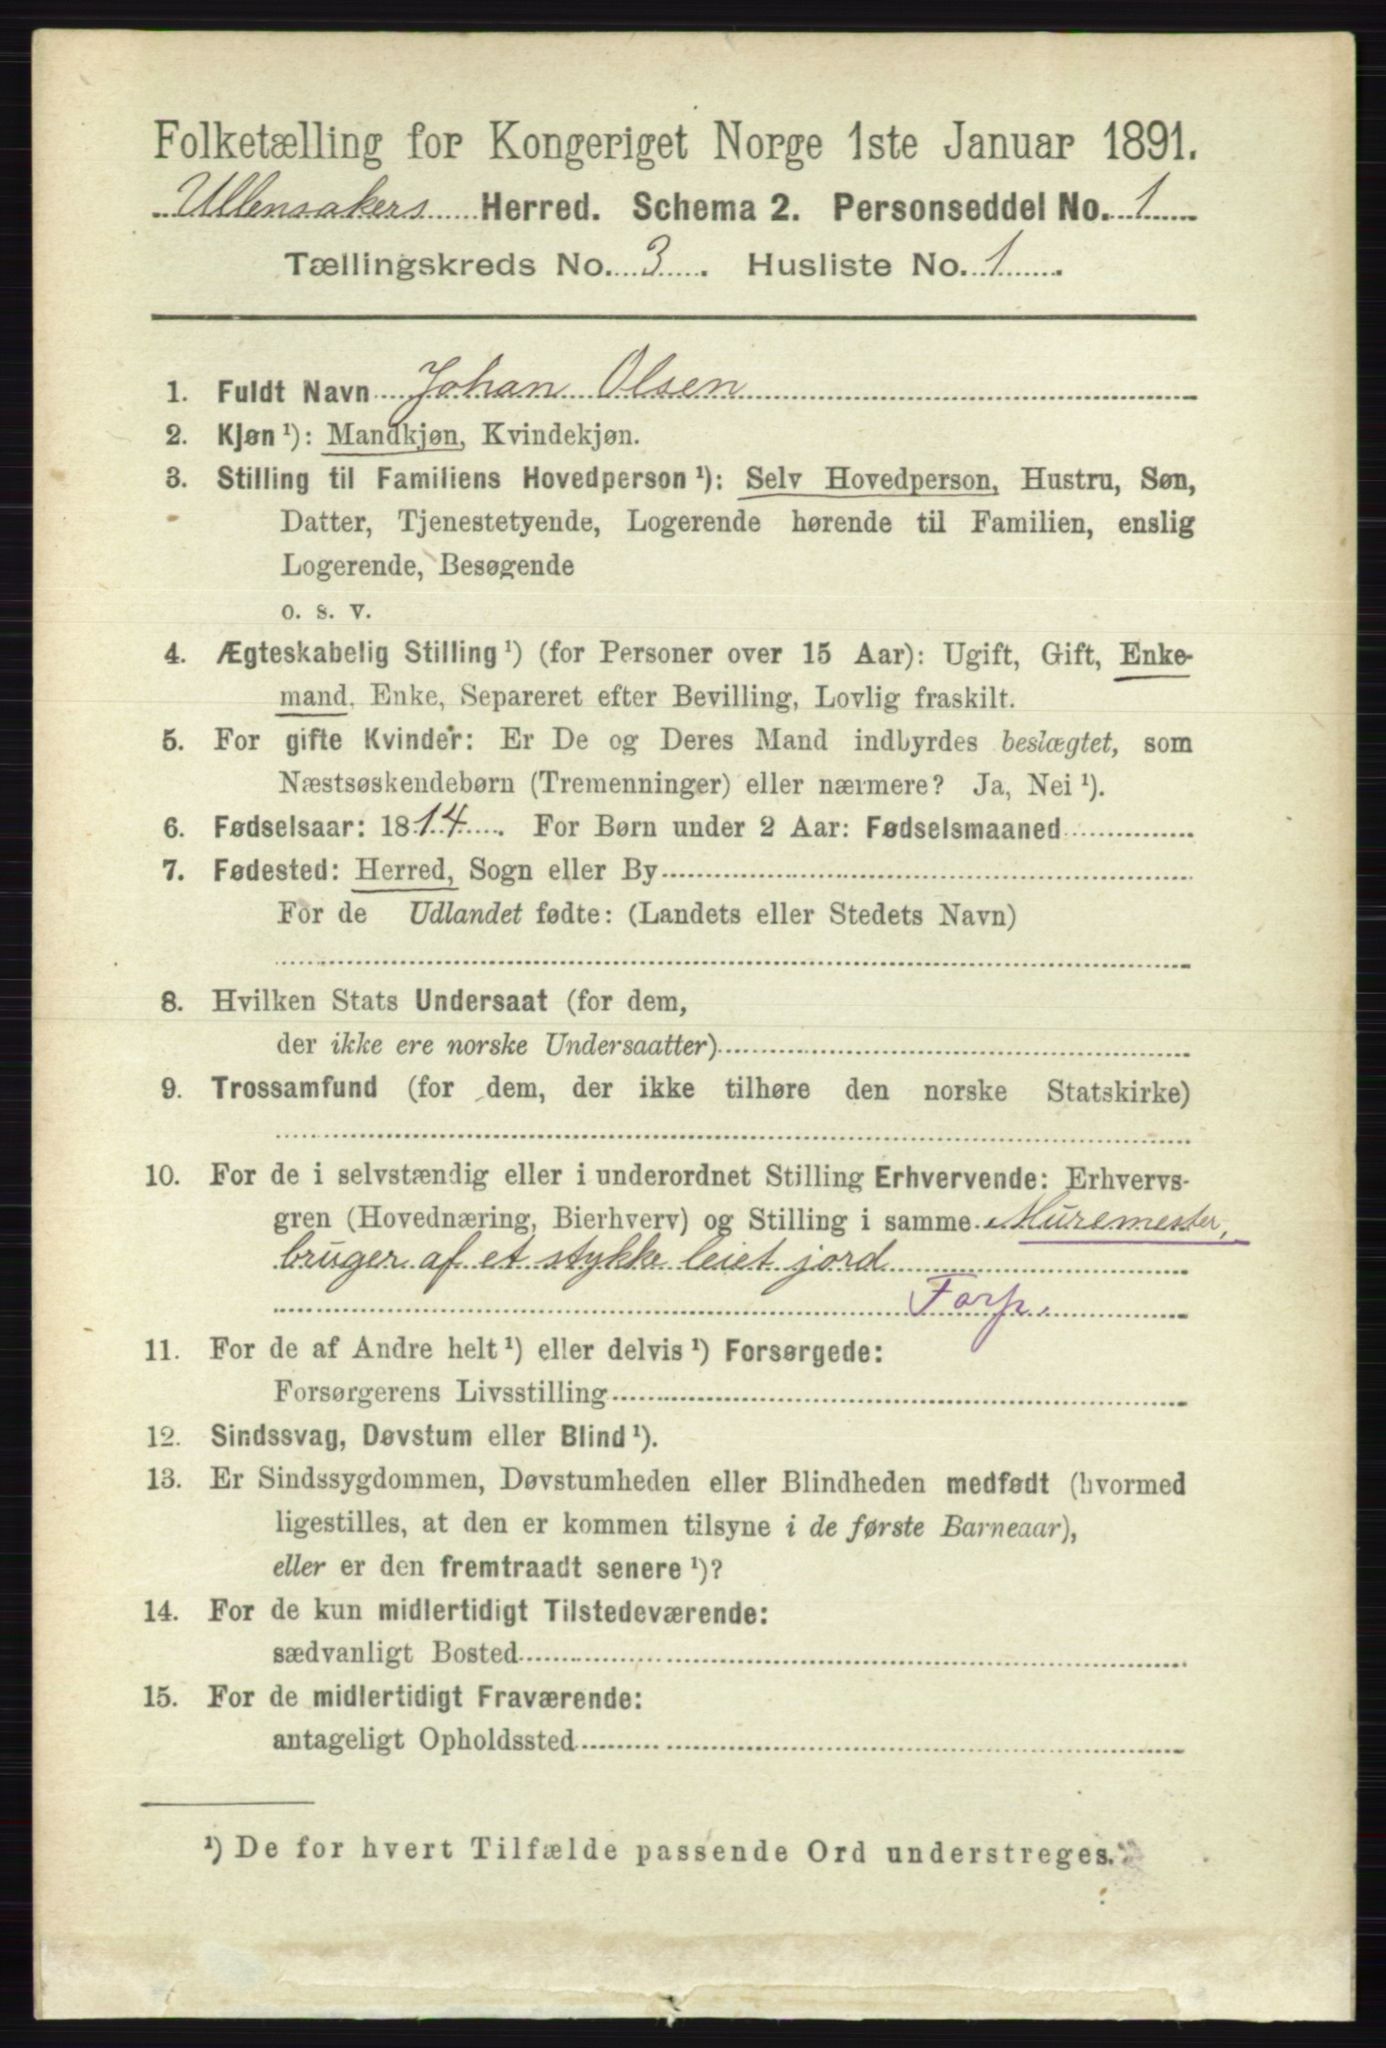 Folketælling for Kongeriget Norge 1ste Januar 1891.
Ullensakers Herred. Schema 2. Personseddel No. 1
Tællingskreds No. 3. Husliste No. 1.
1. Fuldt Navn Johan Olsen
2. Kjøn ¹): Mandkjøn, Kvindekjøn.
3. Stilling til Familiens Hovedperson ¹): Selv Hovedperson, Hustru, Søn,
Datter, Tjenestetyende, Logerende hørende til Familien, enslig
Logerende, Besøgende
o. s. v.
4. Ægteskabelig Stilling ¹) (for Personer over 15 Aar): Ugift, Gift, Enke-
mand, Enke, Separeret efter Bevilling, Lovlig fraskilt.
5. For gifte Kvinder: Er De og Deres Mand indbyrdes beslægtet, som
Næstsøskendebørn (Tremenninger) eller nærmere? Ja, Nei ¹).
6. Fødselsaar: 1814. For Børn under 2 Aar: Fødselsmaaned
7. Fødested: Herred, Sogn eller By
For de Udlandet fødte: (Landets eller Stedets Navn)
8. Hvilken Stats Undersaat (for dem,
der ikke ere norske Undersaatter)
9. Trossamfund (for dem, der ikke tilhøre den norske Statskirke)
10. For de i selvstændig eller i underordnet Stilling Erhvervende: Erhvervs-
gren (Hovednæring, Bierhverv) og Stilling i samme. Muremester,
bruger af et stykke leiet jord
Forp.
11. For de af Andre helt ¹) eller delvis ¹) Forsørgede:
Forsørgerens Livsstilling
12. Sindssvag, Døvstum eller Blind ¹).
13. Er Sindssygdommen, Døvstumheden eller Blindheden medfødt (hvormed
ligestilles, at den er kommen tilsyne i de første Barneaar),
eller er den fremtraadt senere ¹)?
14. For de kun midlertidigt Tilstedeværende:
sædvanligt Bosted
15. For de midlertidigt Fraværende:
antageligt Opholdssted
¹) De for hvert Tilfælde passende Ord understreges.